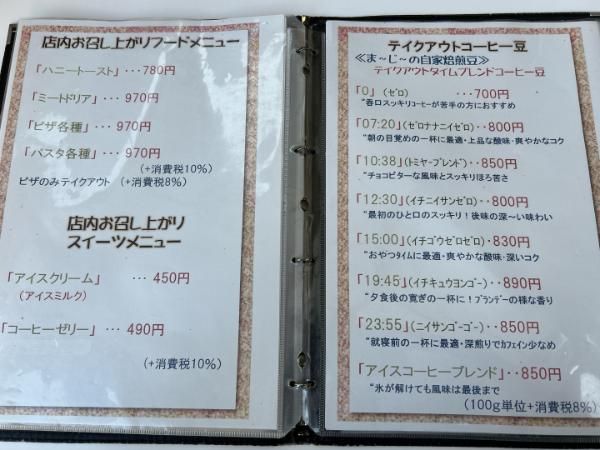 店内お召し上がりフードメニュー
「ハニートースト」・・・780円
「ミートドリア」・・・970円
「ピザ各種」・・・970円
「パスタ各種」・・・970円
(+消費税10%)
ピザのみテイクアウト (+消費税8%)
店内お召し上がり
スイーツメニュー
「アイスクリーム」 ・・・ 450円
(アイスミルク)
「コーヒーゼリー」・・・ 490円
(+消費税10%)
テイクアウトコーヒー豆
≪ま～じ～の自家焙煎豆≫
テイクアウトタイムブレンドコーヒー豆
「0」(ゼロ) ・・・・700円
“香ロスッキリコーヒーが苦手の方におすすめ
「07:20」(ゼロナナニイゼロ)・・800円
“朝の目覚めの一杯に最適・上品な酸味・爽やかなコク
「10:38」(トミヤーブレンド)・・850円
“チョコビターな風味とスッキリほろ苦さ
「12:30」(イチニイサンゼロ)・・800円
“最初のひと口のスッキリ！後味の深～い味わい
「15:00」(イチゴウゼロゼロ)・830円
“おやつタイムに最適・爽やかな酸味・深いコク
「19:45」(イチキュウヨンゴー)・・890円
“夕食後の寛ぎの一杯に！ブランデーの様な香り
「23:55」(ニイサンゴーゴー)・・850円
“就寝前の一杯に最適・深煎りでカフェイン少なめ
「アイスコーヒーブレンド」・・850円
“氷が解けても風味は最後まで
(100g単位+消費税8%)